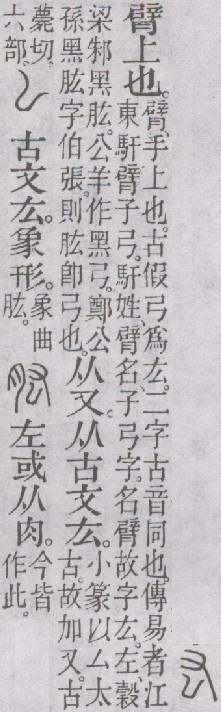 臂上也。
臂、手上也。古假弓爲厷。二字古音同也。傳易者江
東馯臂子弓。馯姓、臂名、子弓字。名臂故字厷。左、穀
梁邾黑肱。公羊作黑弓。鄭公
孫黑肱字伯張。則肱卽弓也。
从又。从古文厷。
小篆以厶太
古。故加又。古
薨切。
六部。
古文厷。象形。
象曲
肱。
厷或从肉。
今皆
作此。